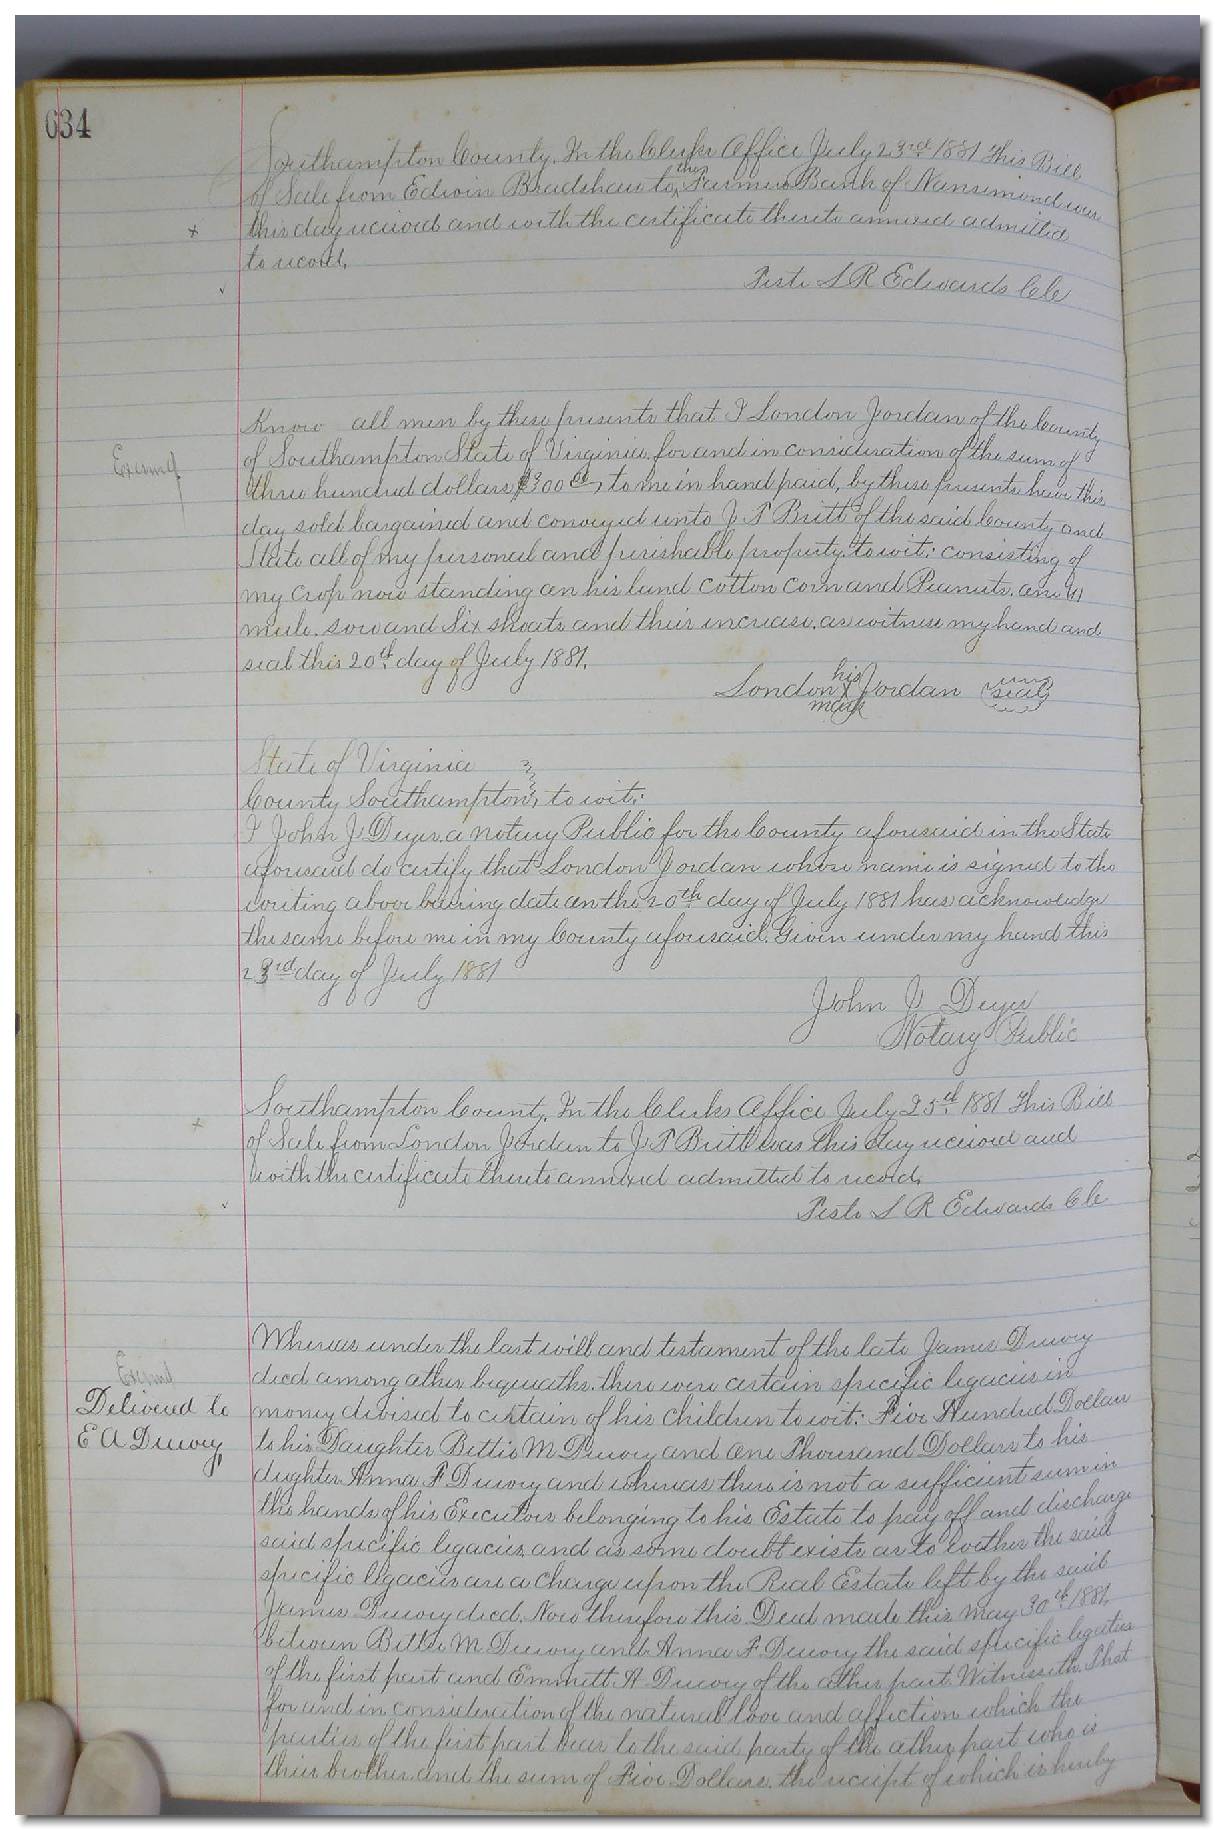 634
Southampton County, In the Clerks Office July 23rd 1881 This Bill
of Sale from Edwin Bradshaw to the Farmers Bank of Nansemond was
x this day received and with the certificate thereto annexed admitted
to record,
Teste L R Edwards Clk
Know all men by these presents that I London Jordan of the County
Examd of Southampton State of Virginia for and in consideration of the sum of
three hundred dollars $300 00, to me in hand paid, by these presents have this
day sold bargained and conveyed unto J. T Britt of the said County and
State all of my personal and perishable property, to wit: consisting of
my crop now standing on his land cotton corn and Peanuts. one
mule. sow and Six shoats and their increase, as witness my hand and
seal this 20th day of July 1881,
his
London X Jordan seal
mark
State of Virginia
County Southampton, to wit:
I John J Deyer a notary Public for the County aforesaid in the State
aforesaid do certify that London Jordan whose name is signed to the
writing above bearing date on the 20th day of July 1881 has acknowledge
the same before me in my County aforesaid. Given under my hand this
23rd day of July 1881
John J Deyer
Notary Public
Southampton County, In the Clerks Office July 25th 1881 This Bill
x of Sale from London Jordan to J. T Britt was this day received and
with the certificate thereto annexed admitted to record,
Teste L R Edwards Clk
Whereas under the last will and testament of the late James Drewry
Examd decd among other bequeaths. there were certain specific legacies in
Delivered to money devised to certain of his children to wit: Five Hundred Dollars
E A Drewry to his Daughter Bettie M Drewry and One Thousand Dollars to his
dughter Anna F Drewry and whereas there is not a sufficient sum in
the hands of his Executors belonging to his Estate to pay off and discharge
said specific legacies, and as some doubt exists as to wether the said
specific legacies are a charge upon the Real Estate left by the said
James Drewry decd. Now therefore this Deed made this May 30th 1881,
between Bettie M Drewry and Anna F. Drewry the said specific legatees
of the first part and Emmett A Drewry of the other part. Witnesseth. That
for and in consideration of the natural love and affection which the
parties of the first part bear to the said party of the other part who is
their brother. and the sum of Five Dollars, the receipt of which is hereby